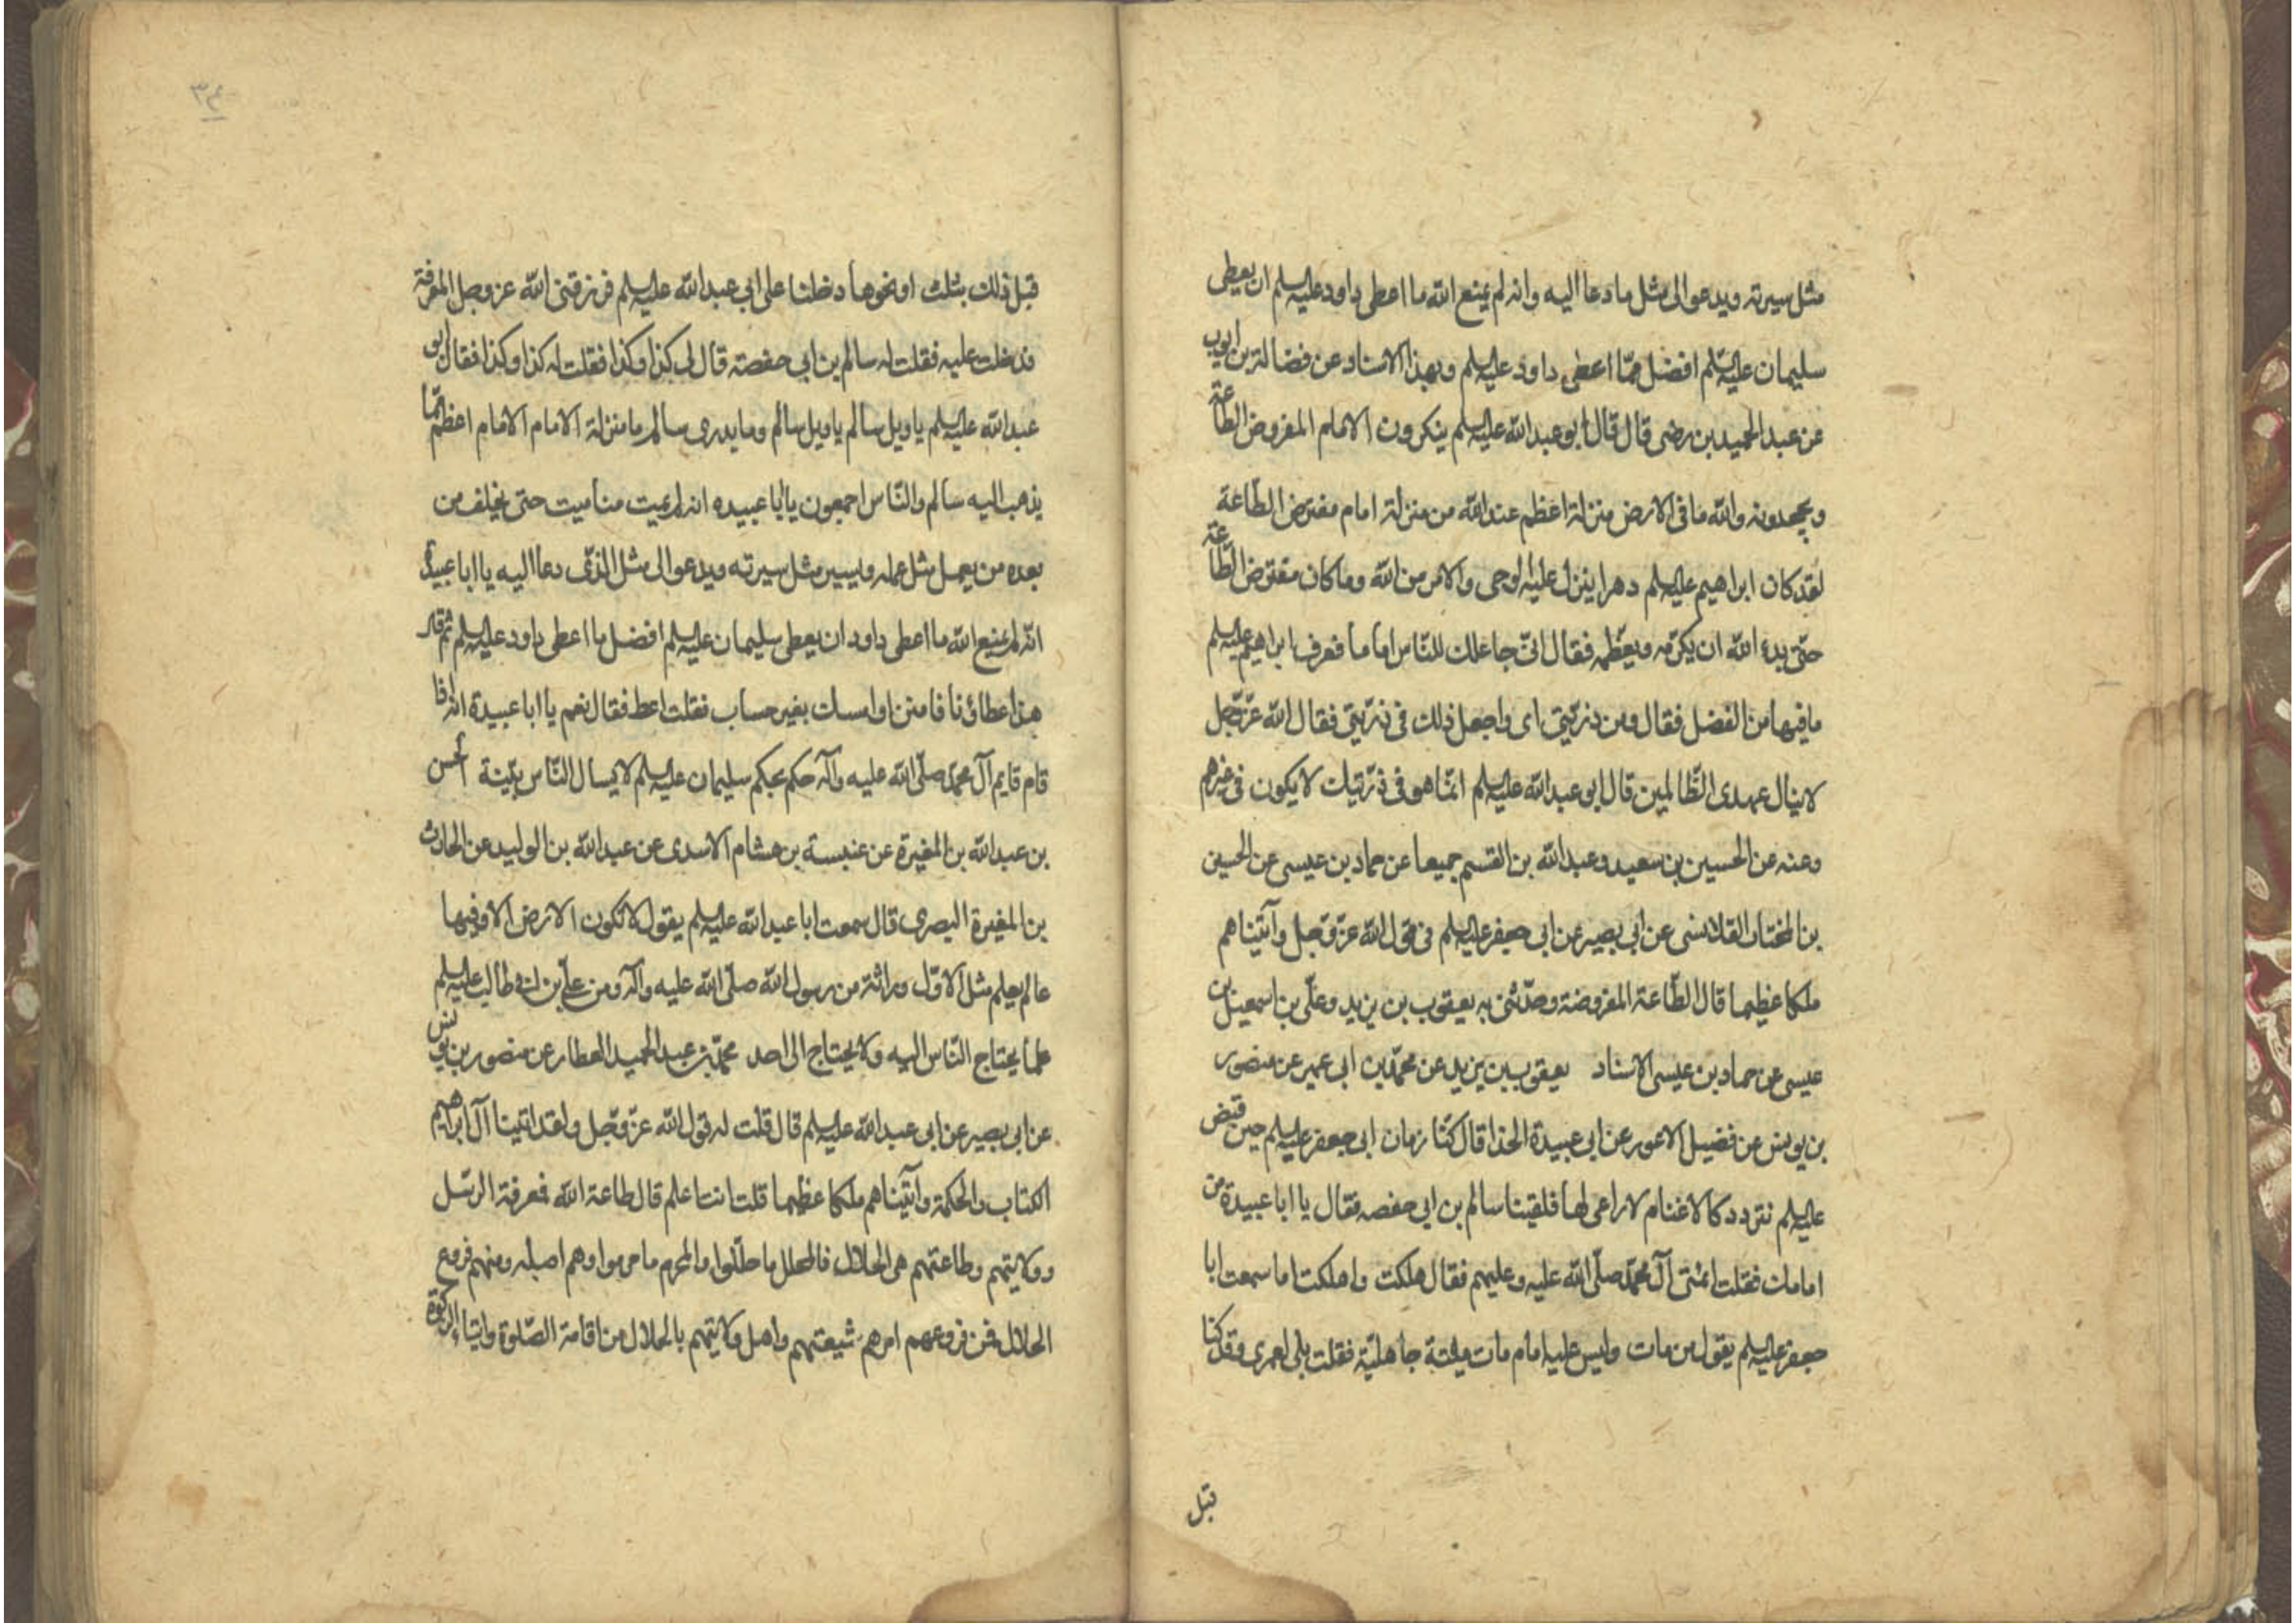 مثل سيرته ويدعو الى مثل ما دعا اليه وانه لم يمنع الله ما اعطى داود عليه السلم ان يعطى
سليمان عليه السلم افضل مما اعطى داود عليه السلم وبهذا الاسناد عن فضالة بن ايوب
عن عبد الحميد بن نضر قال قال ابو عبد الله عليه السلم ينكرون الامام المفروض الطاعة
ويجحدونه والله ما فى الارض منزلة اعظم عند الله من منزلة امام مفترض الطاعة
لقد كان ابراهيم عليه السلم دهرا ينزل عليه الوحى والامر من الله وما كان مفترض الطاعة
حتى بدء الله ان يكرمه ويعظمه فقال انى جاعلك للناس اماما فعرف ابراهيم عليه السلم
ما فيها من الفضل فقال ومن ذريتى اى واجعل ذلك فى ذريتى فقال الله عز وجل
لا ينال عهدى الظالمين قال ابو عبد الله عليه السلم انما هو فى ذريتك لا يكون فى غيرهم
وعنه عن الحسين بن سعيد وعبد الله بن القسم جميعا عن حماد بن عيسى عن الحسين
بن المختار القلانسى عن ابى بصير عن ابى جعفر عليه السلم فى قول الله عز وجل وآتيناهم
ملكا عظيما قال الطاعة المفروضة وحدثنى به يعقوب بن يزيد وعلى بن اسمعيل بن
عيسى عن حماد بن عيسى الاسناد يعقوب بن يزيد عن محمد بن ابى عمير عن منصور
بن يونس عن فضيل الاعور عن ابى عبيدة الحذا قال كنا زمان ابى جعفر عليه السلم حين قبض
عليه السلم نتردد كالاغنام لا راعى لها فلقينا سالم بن ابى حفصه فقال يا ابا عبيدة من
امامك فقلت ائمتى آل محمد صلى الله عليه وعليهم فقال هلكت واهلكت اما سمعت ابا
جعفر عليه السلم يقول من مات وليس عليه امام مات ميتة جاهلية فقلت بلى لعمرى وقد كنا
قبل
٣٤
قبل ذلك بثلث او نحوها دخلنا على ابى عبد الله عليه السلم فرزقنى الله عز وجل المعرفة
فدخلت عليه فقلت له سالم بن ابى حفصة قال لى كذا وكذا فقلت له كذا وكذا فقال ابو
عبد الله عليه السلم يا ويل سالم يا ويل سالم وما يدرى سالم ما منزلة الامام الامام اعظم مما
يذهب اليه سالم والناس اجمعون يا ابا عبيده انه لم يميت منا ميت حتى يخلف من
بعده من يعمل مثل عمله ويسير مثل سيرته ويدعو الى مثل الذى دعا اليه يا ابا عبيدة
انه لم يمنع الله ما اعطى داود ان يعطى سليمان عليه السلم افضل ما اعطى داود عليه السلم ثم قال
هذا عطاؤنا فامنن او امسك بغير حساب فقلت اعط فقال نعم يا ابا عبيدة انه اذا
قام قايم آل محمد صلى الله عليه وآله حكم بحكم سليمان عليه السلم لا يسال الناس بينة الحسن
بن عبد الله بن المغيرة عن عنبسة بن هشام الاسدى عن عبد الله بن الوليد عن الحارث
بن المغيرة البصرى قال سمعت ابا عبد الله عليه السلم يقول لا تكون الارض الا وفيها
عالم يعلم مثل الاول وراثة من رسول الله صلى الله عليه وآله ومن على بن ابى طالب عليه السلم
علما يحتاج الناس اليه ولا يحتاج الى احد محمد بن عبد الحميد العطار عن منصور بن يونس
عن ابى بصير عن ابى عبد الله عليه السلم قال قلت له قول الله عز وجل ولقد اتينا آل ابراهيم
الكتاب والحكمة وآتيناهم ملكا عظيما قلت انت اعلم قال طاعة الله فمعرفة الرسل
وولايتهم وطاعتهم هى الحلال فالمحلل ما حللوا والمحرم ما حرموا وهم اصله ومنهم فروع
الحلال فمن فروعهم امرهم شيعتهم واهل ولايتهم بالحلال من اقامة الصلوة وايتاء الزكوة